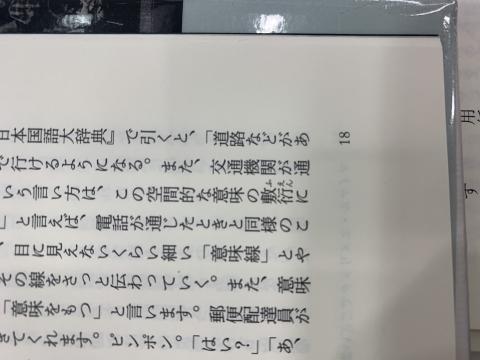 日本国語大辞典』で引くと、「道路などがあ
で行けるようになる。また、交通機関が通
いう言い方は、この空間的な意味の敷衍に
」と言えば、電話が通じたときと同様のこ
、目に見えないくらい細い「意味線」とや
その線をさっと伝わっていく。また、意味
「意味をもつ」と言います。郵便配達員が
きてくれます。ピンポン。「はい？」「あ、
18
用
す